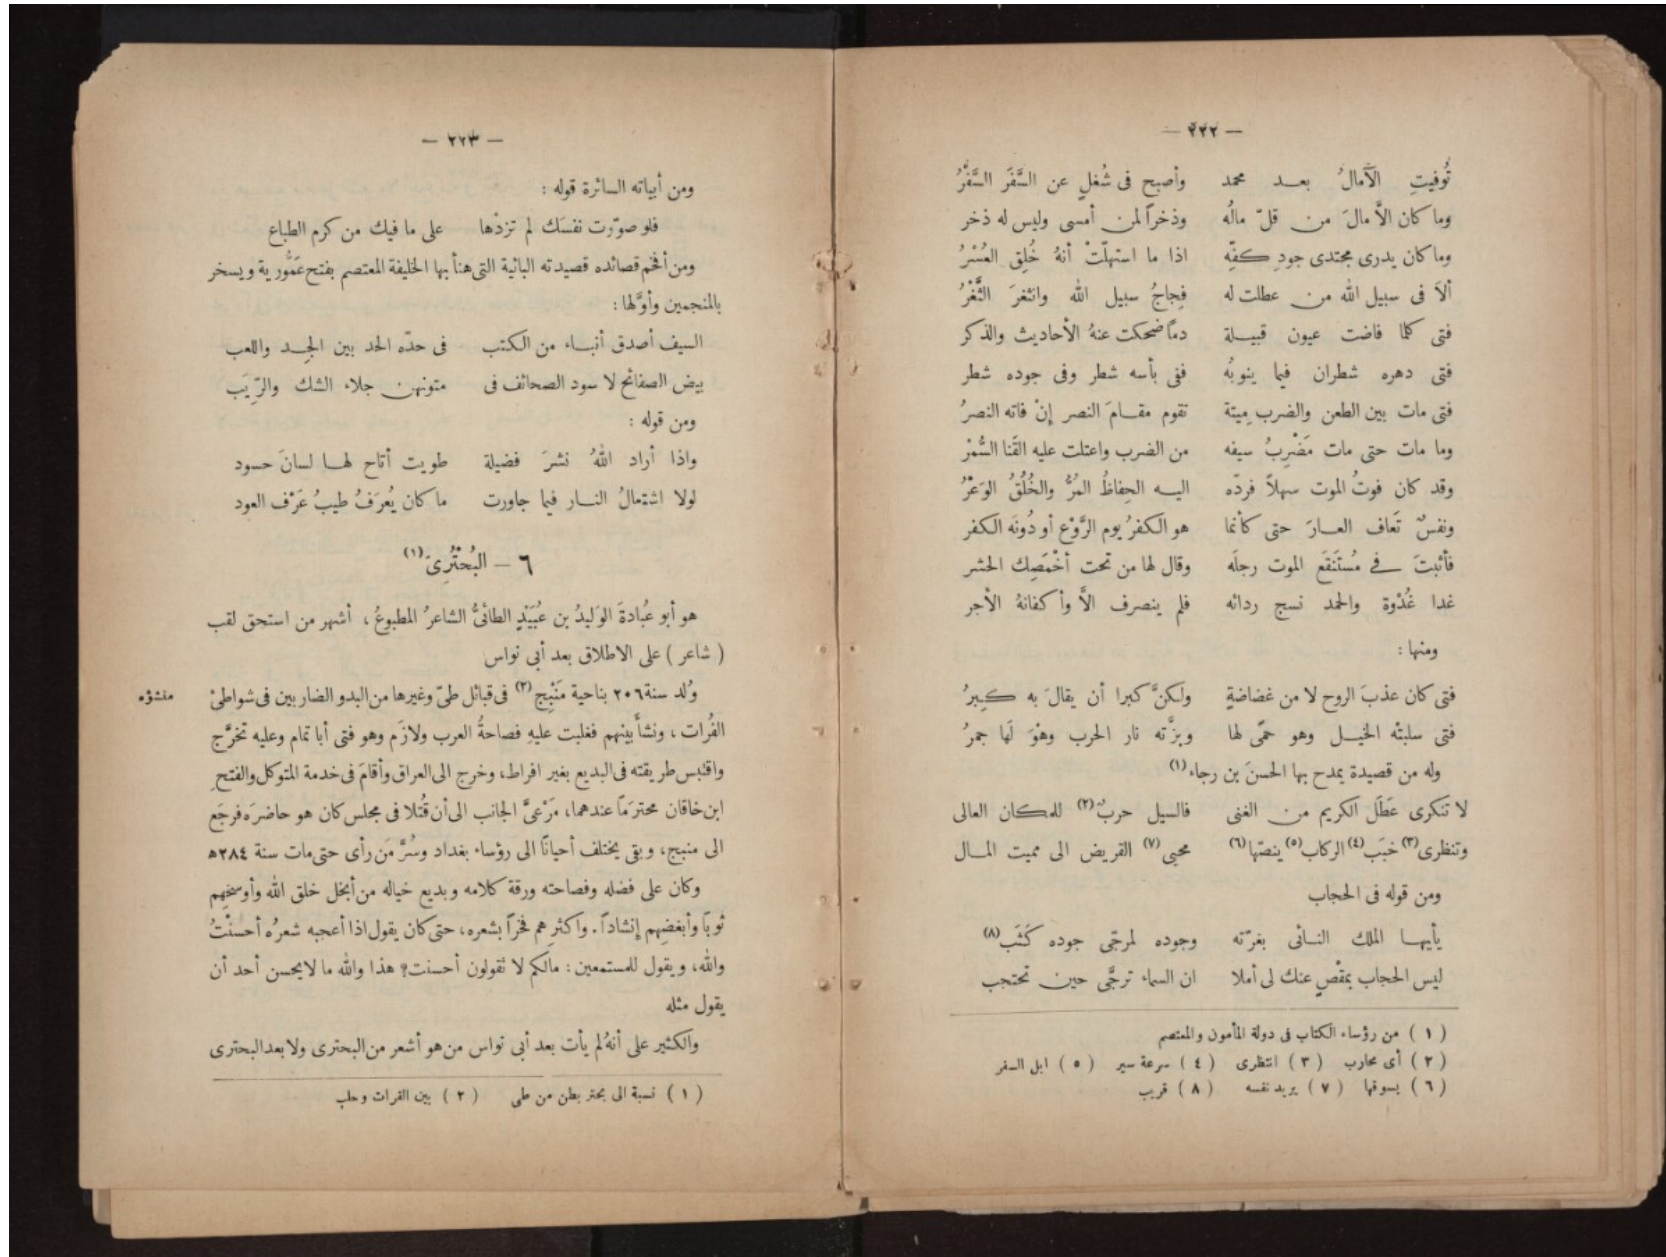 — ٢٢٢ —
تُوفيتِ الآمالُ بعد محمد وأصبح فى شُغلٍ عن السَّفَر السَّفْرُ
وما كان الاَّ مالَ من قلّ مالُه وذخراً لمن أمسى وليس له ذخر
وما كان يدرى مجتدى جودِ كفِّه اذا ما استهلّتْ أنهُ خُلِق العُسْرُ
ألاَ فى سبيل الله من عطلت له فِجاجُ سبيل الله وانثغرَ الثَّغْرُ
فتى كلما فاضت عيون قبيلة دماً ضحكت عنهُ الأحاديث والذكر
فتى دهره شطران فيما ينوبُه ففى بأسه شطر وفى جوده شطر
فتى مات بين الطعن والضرب مِيتة تقوم مقامَ النصر إنْ فاته النصرُ
وما مات حتى مات مَضْرِبُ سيفه من الضرب واعتلت عليه القَنا السُّمْرُ
وقد كان فوتُ الموت سهلاً فردّه اليه الحِفاظُ المُرُّ والخُلُقُ الوَعْرُ
ونفسٌ تَعاف العارَ حتى كأنما هو الكفرُ يوم الرَّوْع أو دُونَه الكفر
فأثبتَ فى مُستَنقَع الموت رجلَه وقال لها من تحت أخْمَصِك الحشر
غدا غُدْوة والحمد نسج ردائه فلم ينصرف الاَّ وأكفانهُ الأجر
ومنها :
فتى كان عذبَ الروح لا من غضاضةٍ ولكنَّ كبرا أن يقالَ به كِبرُ
فتى سلبتْه الخيل وهو حمًى لها وبزَّته نار الحرب وهوَ لَها جمرُ
وله من قصيدة يمدح بها الحسنَ بن رجاء (١)
لا تنكرى عَطَل الكريم من الغنى فالسيل حربٌ (٢) للمكان العالى
وتنظرى (٣) خبَب (٤) الركاب (٥) ينصّها (٦) محيى (٧) القريض الى مميت المال
ومن قوله فى الحجاب
يأيها الملك النائى بغرّته وجوده لمرجّى جوده كَثَب (٨)
ليس الحجاب بمقْصٍ عنك لى أملا ان السماء ترجَّى حين تحتجب
( ١ ) من رؤساء الكتاب فى دولة المأمون والمعتصم
( ٢ ) أى محارب ( ٣ ) انتظرى ( ٤ ) سرعة سير ( ٥ ) ابل السفر
( ٦ ) يسوقها ( ٧ ) يريد نفسه ( ٨ ) قريب
— ٢٢٣ —
ومن أبياته السائرة قوله :
فلو صوّرت نفسَك لم تزدْها على ما فيك من كرم الطباع
ومن أفخم قصائده قصيدته البائية التى هنأ بها الخليفة المعتصم بفتح عَمُّورية ويسخر
بالمنجمين وأوَّلها :
السيف أصدق أنباء من الكتب فى حدّه الحد بين الجِد واللعب
بيض الصفائح لا سود الصحائف فى متونهن جلاء الشك والرِّيَب
ومن قوله :
واذا أراد اللهُ نشرَ فضيلة طويت أتاح لها لسانَ حسود
لولا اشتمالُ النار فيما جاورت ما كان يُعرَفُ طيبُ عَرْف العود
٦ – البُحْتُرِىّ (١)
هو أبو عُبادةَ الوَليدُ بن عُبَيْدٍ الطائىُّ الشاعرُ المطبوعُ ، أشهر من استحق لقب
( شاعر ) على الاطلاق بعد أبى نواس
منشؤه
وُلد سنة ٢٠٦ بناحية مَنْبِج (٢) فى قبائل طيّ وغيرها من البدو الضاربين فى شواطئ
الفُرات ، ونشأ بينهم فغلبت عليهِ فصاحةُ العرب ولازَم وهو فتى أبا تمام وعليه تخرَّج
واقتبس طريقته فى البديع بغير افراط، وخرج الى العراق وأقامَ فى خدمة المتوكل والفتحِ
ابن خاقان محترَماً عندهما، مَرْعىَّ الجانب الى أن قُتلا فى مجلس كان هو حاضرَه فرجَع
الى منبج، وبقى يختلف أحيانًا الى رؤساء بغداد وسُرَّ مَن رأى حتى مات سنة ٢٨٤ه
وكان على فضله وفصاحته ورقة كلامه وبديع خياله من أبخل خلق الله وأوسخِهم
ثوباً وأبغضِهم إنشاداً . واكثرِهم فخراً بشعره، حتى كان يقول اذا أعجبه شعرُه أحسنْتُ
والله، ويقول للمستمعين : مالكم لا تقولون أحسنت؟ هذا والله ما لا يحسن أحد أن
يقول مثله
والكثير على أنهُ لم يأت بعد أبى نواس من هو أشعر من البحترى ولا بعد البحترى
( ١ ) نسبة الى بحتر بطن من طى ( ٢ ) بين الفرات وحلب